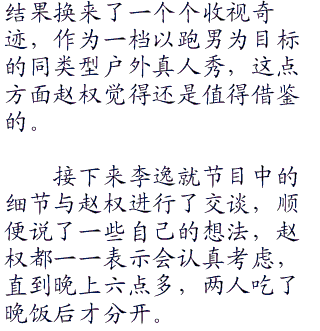 结果换来了一个个收视奇
迹，作为一档以跑男为目标
的同类型户外真人秀，这点
方面赵权觉得还是值得借鉴
的。
接下来李逸就节目中的
细节与赵权进行了交谈，顺
便说了一些自己的想法，赵
权都一一表示会认真考虑，
直到晚上六点多，两人吃了
晚饭后才分开。